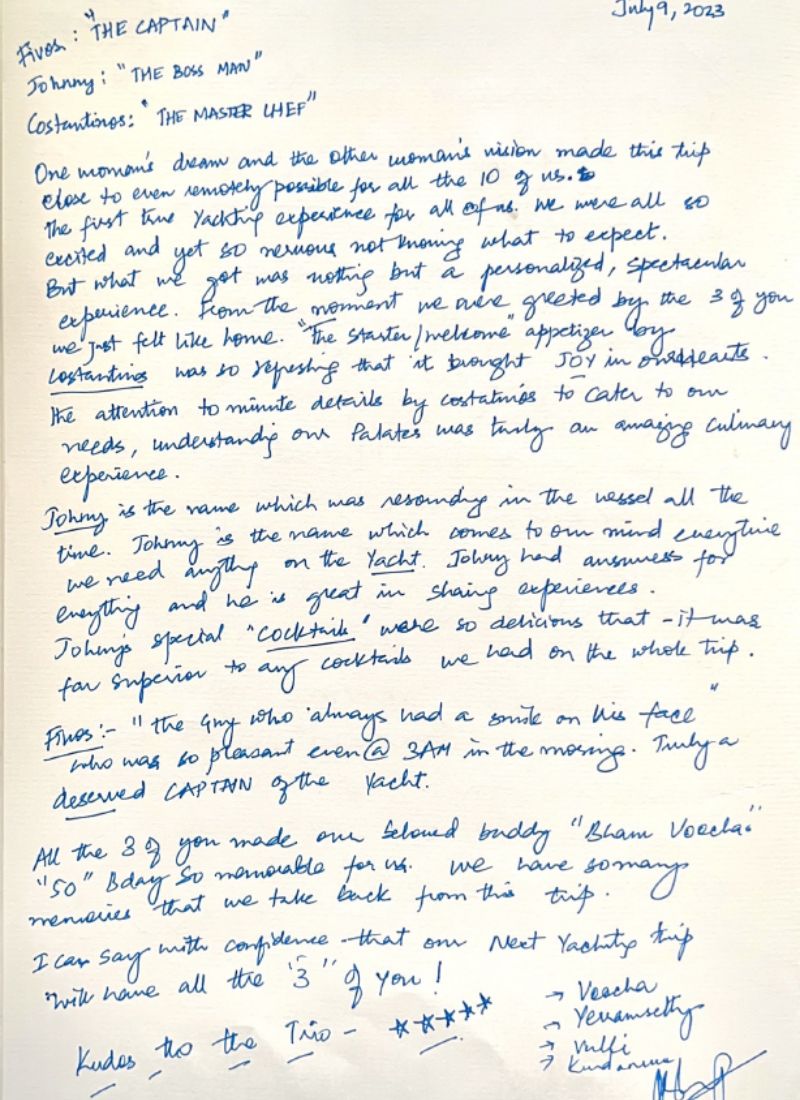 July 9, 2023
Fivos : "THE CAPTAIN"
Johnny : "THE BOSS MAN"
Costantinos: "THE MASTER CHEF"
One woman's dream and the other woman's vision made this trip
close to even remotely possible for all the 10 of us.
The first time Yachting experience for all of us. We were all so
excited and yet so nervous not knowing what to expect.
But what we got was nothing but a personalized, spectacular
experience. From the moment we were greeted by the 3 of you
we just felt like home. "The starter/welcome" appetizer by
Costantinos was so refreshing that it brought JOY in our hearts.
The attention to minute details by costatinos to cater to our
needs, understanding our Palates was truly an amazing culinary
experience.
Johnny is the name which was resounding in the vessel all the
time. Johnny is the name which comes to our mind everytime
we need anything on the Yacht. Johny had answers for
everything and he is great in sharing experiences.
Johnny's special "Cocktails" were so delicious that - it was
far superior to any cocktails we had on the whole trip.
Fivos :- "The Guy who always had a smile on his face"
who was so pleasant even @ 3AM in the morning. Truly a
deserved CAPTAIN of the Yacht.
All the 3 of you made our beloved buddy "Bham Voocha"
"50" Bday so memorable for us. We have so many
memories that we take back from this trip.
I can say with confidence that our Next Yachting trip
will have all the "3" of you!
Kudos to the Trio - ★★★★★
→ Voocha
→ Yerramsetty
→ Vulli
→